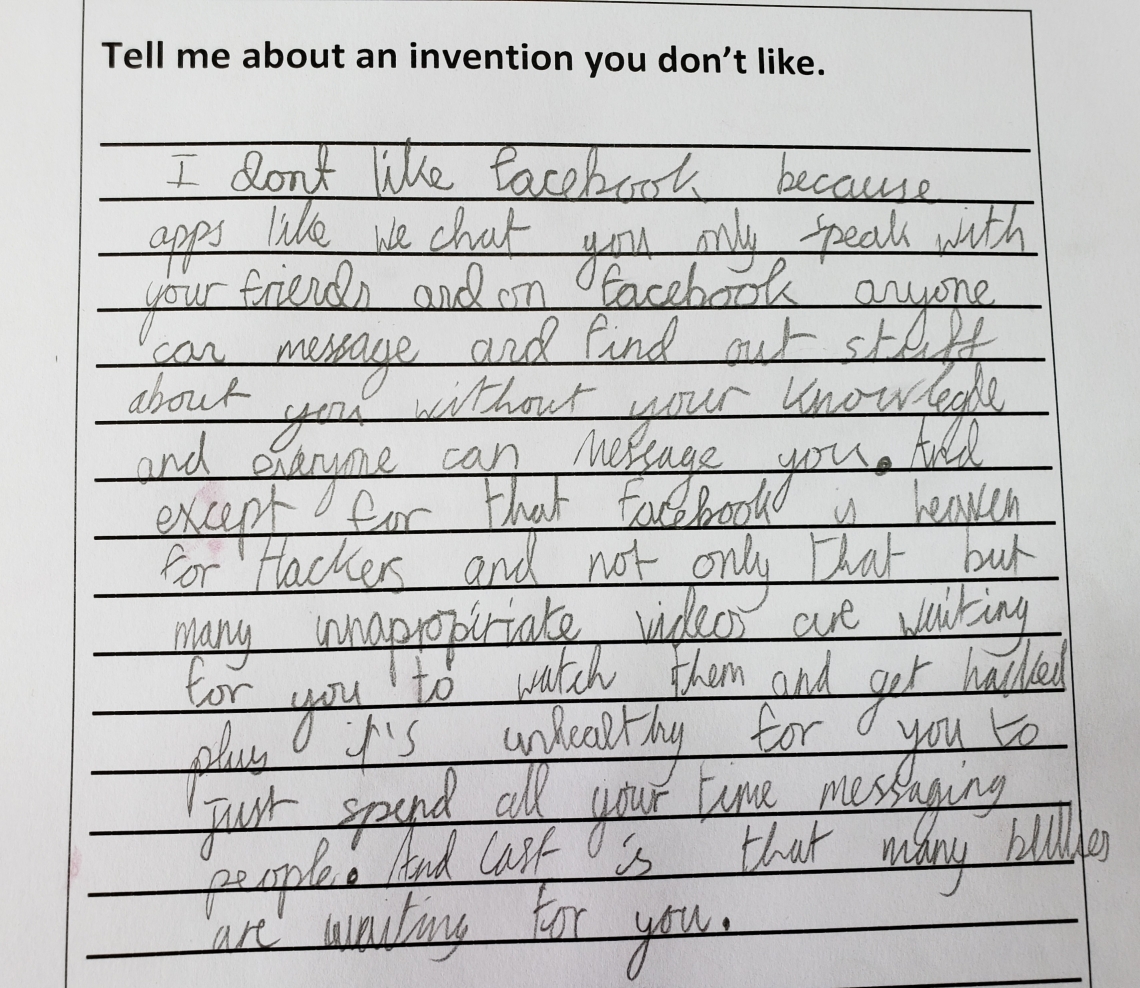 Tell me about an invention you don't like.
I dont like facebook because
apps like we chat you only speak with
your friends and on facebook anyone
can message and find out stuff
about you without your knowlegde
and everyone can message you. And
except for that facebook is heaven
for Hackers and not only that but
many innapropiriate videos are waiting
for you to watch them and get hacked
plus it's unhealthy for you to
just spend all your time messaging
people. And last is that many bullies
are waiting for you.